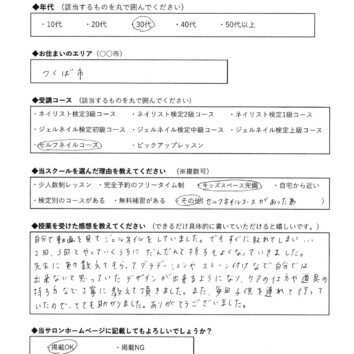 ◆年代 （該当するものを丸で囲んでください）
・10代 ・20代 ・30代 ・40代 ・50代以上
◆お住まいのエリア （〇〇市）
つくば市
◆受講コース （該当するものを丸で囲んでください）
・ネイリスト検定3級コース ・ネイリスト検定2級コース ・ネイリスト検定1級コース
・ジェルネイル検定初級コース ・ジェルネイル検定中級コース ・ジェルネイル検定上級コース
・セルフネイルコース ・ピックアップレッスン
◆当スクールを選んだ理由を教えてください （※複数可）
・少人数制レッスン ・完全予約のフリータイム制 ・キッズスペース完備 ・自宅から近い
・検定別のコースがある ・無料補習がある ・その他（セルフネイルコースがあった為 ）
◆授業を受けた感想を教えてください （できるだけ具体的に書いていただけると嬉しいです。）
自分で動画を見てジェルネイルをしていました。でもすぐに取れてしまい…
2回、3回とやっていくうちにだんだんと持ちもよくなっていきました。
先生に色々教えてもらい、グラデーションやストーン付けなど自分では
出来ないと思っていたデザインが出来るようになり、ケアの仕方や道具の
持ち方など丁寧に教えて頂きました。また、毎回子供を連れて行って
いたので、とても助かりました。ありがとうございました。
◆当サロンホームページに記載してもよろしいでしょうか？
・掲載OK ・掲載NG